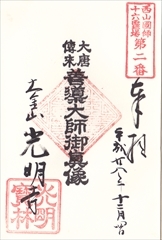 西山国師
十六霊場
第二番
奉拝
平成廿八年十二月四日
大唐
傳来
善導大師御真像
光明寺